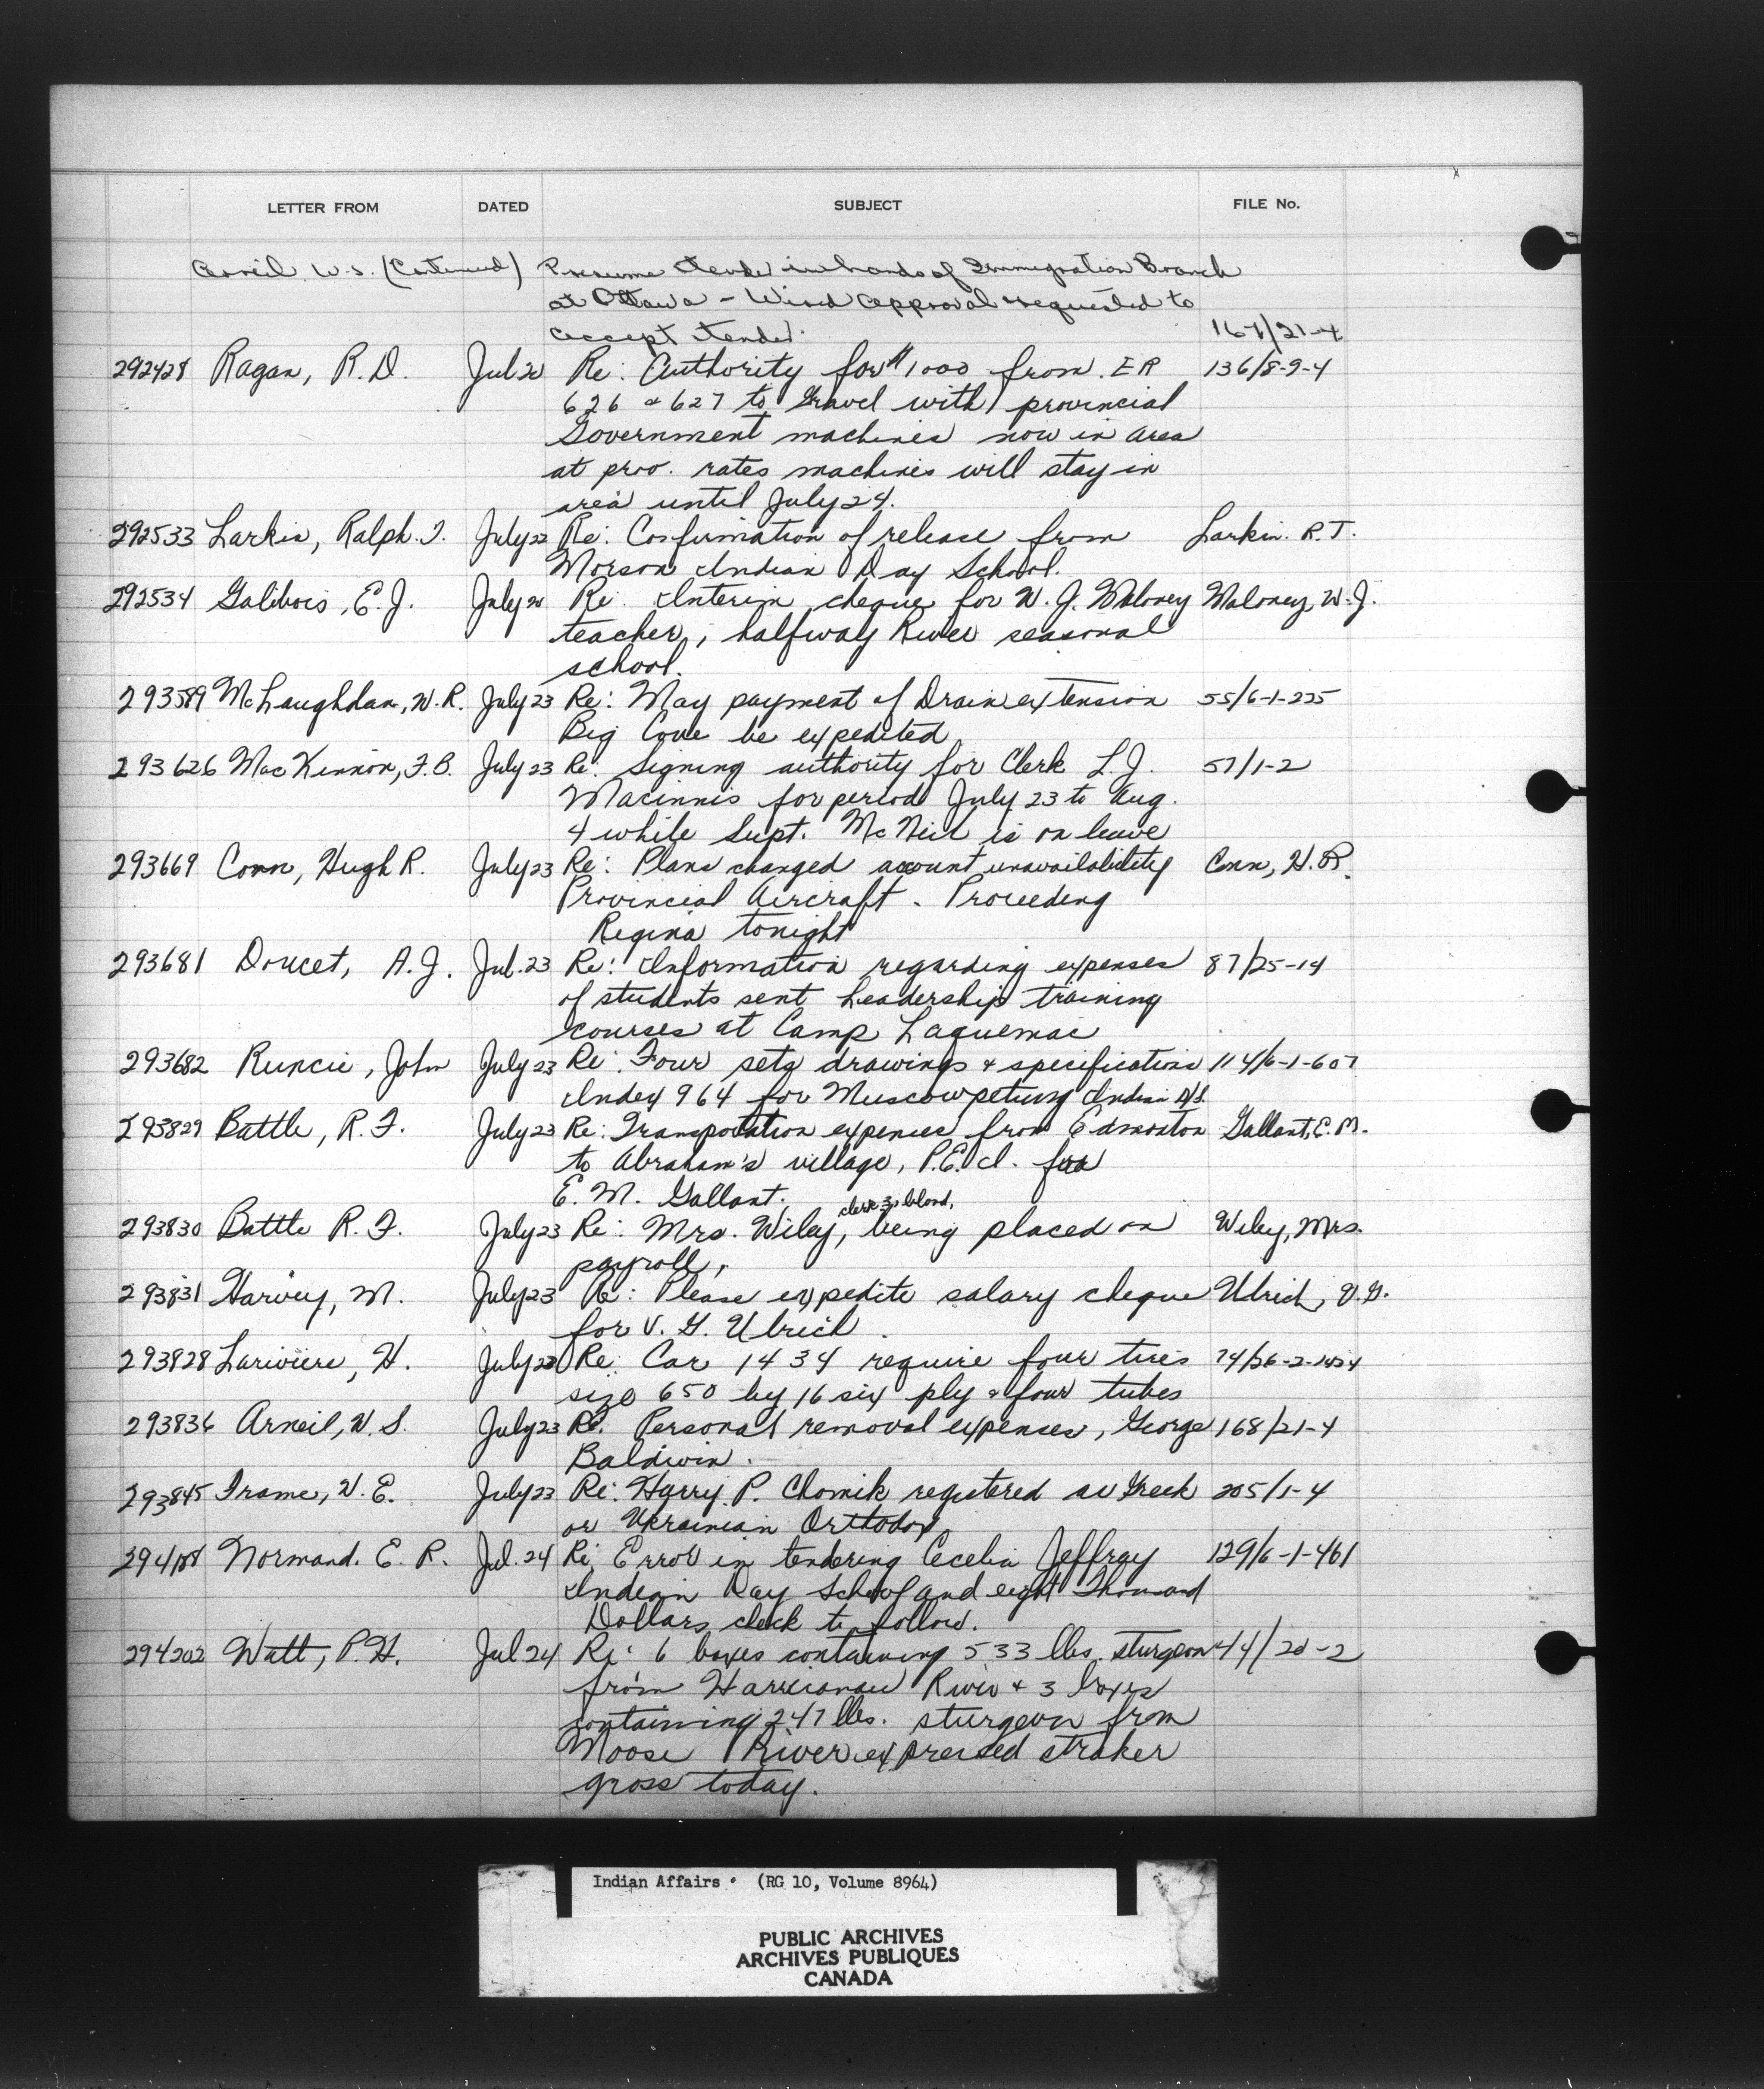 LETTER FROM DATED SUBJECT FILE No.
Arneil W.S. (Continued) Presume tender in hands of Immigration Branch
at Ottawa - Wired approval requested to
accept tender. 167/21-4
292428 Ragan, R.D. Jul 20 Re: Authority for $1000 from ER 136/8-9-4
626 & 627 to Gravel with provincial
Government machines now in area
at prov. rates machines will stay in
area until July 24.
292533 Larkin, Ralph T. July 22 Re: Confirmation of release from Larkin R.T.
Morson Indian Day School.
292534 Galibois, E.J. July 20 Re: Interim cheque for W.J. Maloney Maloney, W.J.
teacher, halfway River seasonal
school.
293589 McLaughlan, W.R. July 23 Re: May payment of Drain extension 55/6-1-225
Big Cove be expedited
293626 MacKinnon, F.B. July 23 Re: Signing authority for Clerk L.J. 57/1-2
Macinnis for period July 23 to Aug.
4 while Supt. McNeil is on leave
293669 Conn, Hugh R. July 23 Re: Plans changed account unavailability Conn, H.R.
Provincial Aircraft. Proceeding
Regina tonight
293681 Doucet, A.J. Jul. 23 Re: Information regarding expenses 87/25-14
of students sent Leadership training
courses at Camp Laquemac
293682 Runcie, John July 23 Re: Four sets drawings & specification 114/6-1-607
Index 964 for Muscowpetung Indian D/S.
293829 Battle, R.F. July 23 Re: Transportation expenses from Edmonton Gallant, E.M.
to Abraham's village, P.E.I. for
E.M. Gallant.
clerk 3, blood,
293830 Battle R.F. July 23 Re: Mrs. Wiley, being placed on Wiley, Mrs.
payroll,
293831 Harvey, M. July 23 Re: Please expedite salary cheque Ulrich, V.G.
for V.G. Ulrich.
293828 Lariviere, H. July 23 Re: Car 1434 require four tires 74/26-2-1434
size 650 by 16 six ply & four tubes
293836 Arneil, W.S. July 23 Re: Personal removal expenses, George 168/21-4
Baldwin.
293845 Frame, W.E. July 23 Re: Harry P. Chomik registered as Greek 205/1-4
or Ukrainian Orthodox
Normand. E.R. Jul. 24 Re: Error in tendering Cecelia Jeffray 129/6-1-461
Indian Day School and eight Thousand
Dollars check to follow.
294202 Watt, P.H. Jul 24 Re: 6 boxes containing 533 lbs. sturgeon 44/20-2
from Harricanaw River & 3 boxes
containing 247 lbs. sturgeon from
Moose River expressed straker
gross today.
Indian Affairs. (RG 10, Volume 8964)
PUBLIC ARCHIVES
ARCHIVES PUBLIQUES
CANADA